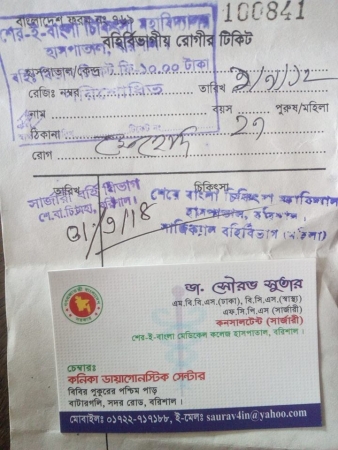 বাংলাদেশ ফরম নং ৭৬৯
100841
শের-ই-বাংলা চিকিৎসা মহাবিদ্যালয়
হাসপাতাল,
বহির্বিভাগীয় রোগীর টিকিট
হাসপাতাল/কেন্দ্র
১০.০০ টাকা
রেজিঃ নম্বর
তারিখ
নাম
বয়স
পুরুষ/মহিলা
ঠিকানা
রোগ
তারিখ
চিকিৎসা
সার্জারী বহিঃ বিভাগ
শেরে বাংলা চিকিৎসা মহাবিদ্যালয়
হাসপাতাল, বরিশাল।
সার্জিক্যাল বহিবিভাগ
ডা. সৌরভ সুতার
এম.বি.বি.এস.(ঢাকা), বি.সি.এস.(স্বাস্থ্য)
এফ.সি.পি.এস (সার্জারী)
কনসালটেন্ট (সার্জারী)
শের-ই-বাংলা মেডিকেল কলেজ হাসপাতাল, বরিশাল।
চেম্বারঃ
কনিকা ডায়াগোনস্টিক সেন্টার
বিবির পুকুরের পশ্চিম পাড়
বাটারগলি, সদর রোড, বরিশাল।
মোবাইলঃ ০১৭২২-৭১৭১৮৮, ই-মেলঃ saurav4in@yahoo.com